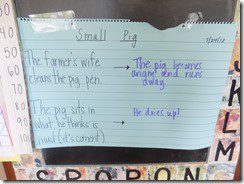 Small Pig
The farmer's wife
cleans the pig pen.
The pig becomes
angry and runs
away.
The pig sits in
what he thinks is
mud (it's cement)
He dries up!